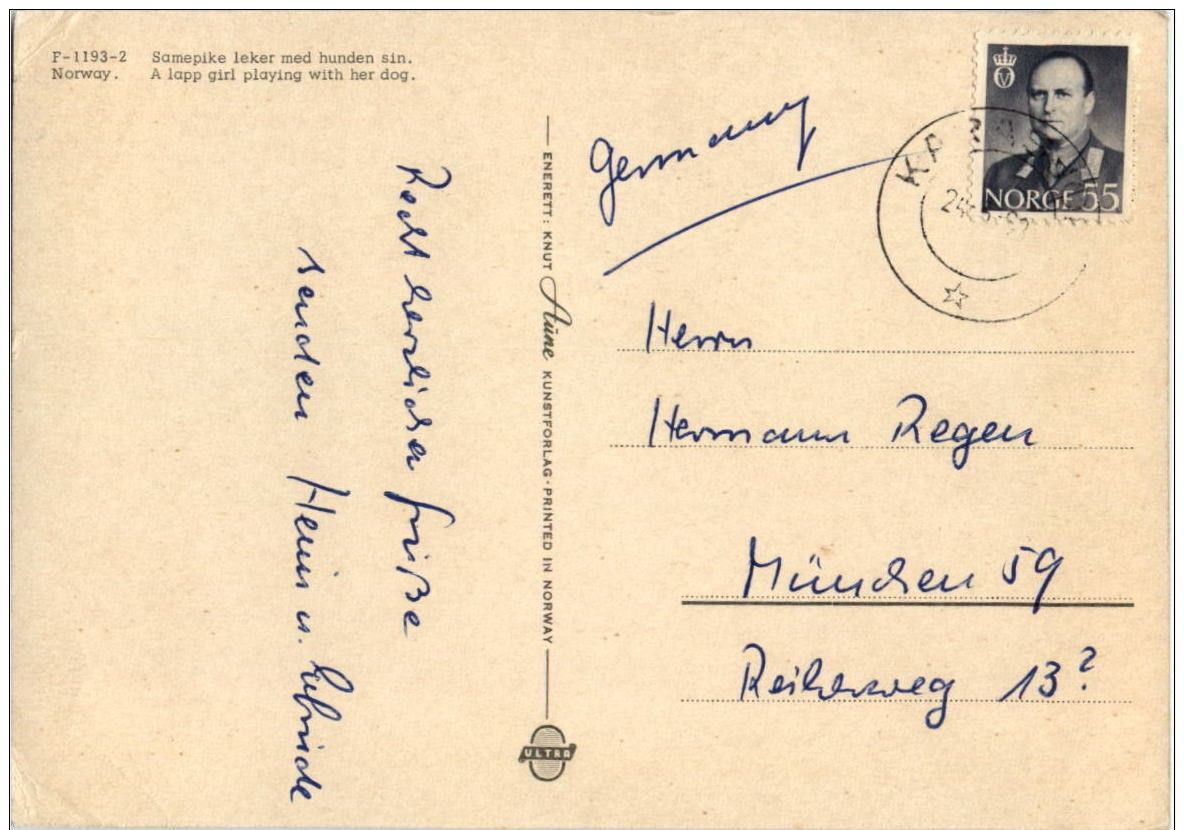 F-1193-2 Samepike leker med hunden sin.
Norway. A lapp girl playing with her dog.
Recht herzliche Grüße
senden Heinis u.
ENERETT: KNUT Aune KUNSTFORLAG · PRINTED IN NORWAY
ULTRA
Germany
NORGE 55
Herrn
Hermann Regen
München 59
Reiherweg 13?